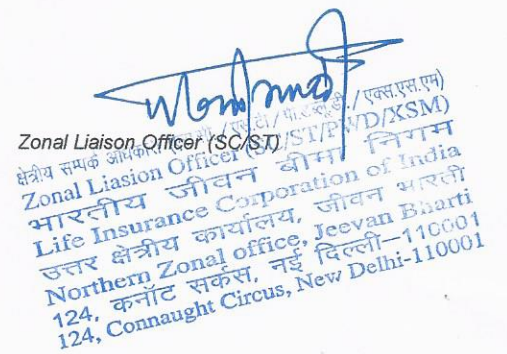 Zonal Liaison Officer (SC/ST)
क्षेत्रीय सम्पर्क अधिकारी (एस.सी./एस.टी/पी.डब्लू.डी./एक्स.एस.एम)
Zonal Liasion Officer (SC/ST/PWD/XSM)
भारतीय जीवन बीमा निगम
Life Insurance Corporation of India
उत्तर क्षेत्रीय कार्यालय, जीवन भारती
Northern Zonal office, Jeevan Bharti
124, कनॉट सर्कस, नई दिल्ली–110001
124, Connaught Circus, New Delhi-110001